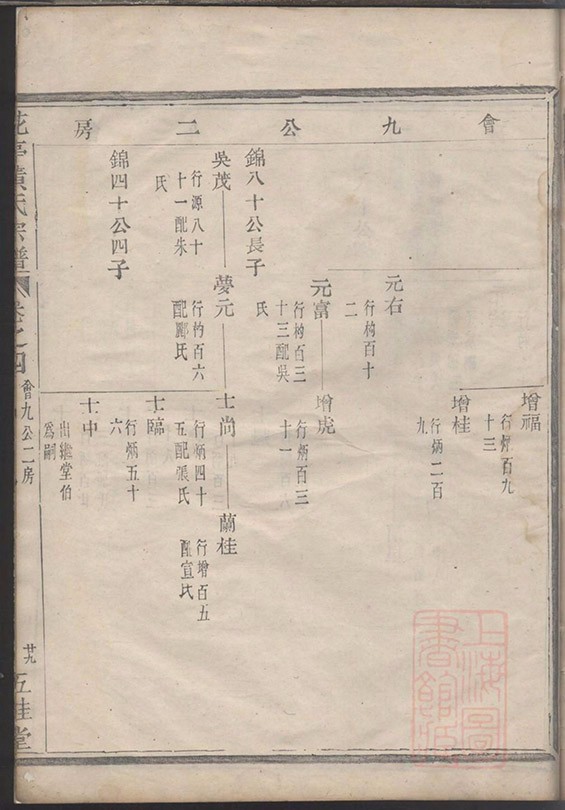 會九公二房
增福
行炳百九
十三
增桂
行炳二百
九
元右
行杓百十
二
元富
行杓百三
十三配吳
氏
增虎
行炳百三
十一
錦八十公長子
吳茂
行源八十
十一配朱
氏
夢元
行杓百六
配酈氏
士尚
行炳四十
五配張氏
蘭桂
行增百五
配宣氏
士臨
行炳五十
六
士中
出繼堂伯
爲嗣
錦四十公四子
黃氏宗譜
卷之四
會九公二房
廿九
五桂堂
上海圖
書館藏